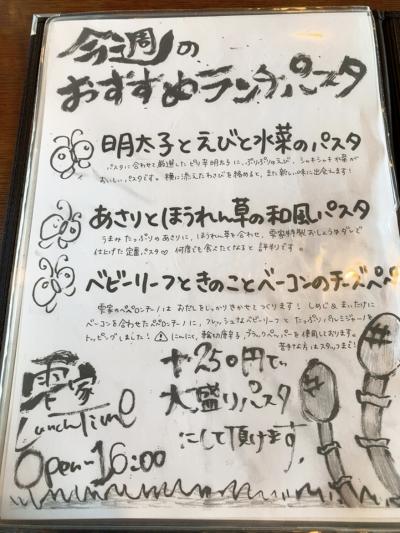 今週の
おすすめランチパスタ
明太子とえびと水菜のパスタ
パスタに合わせて厳選したピリ辛明太子に、ぷりぷりえび、シャキシャキ水菜が
おいしいパスタです。横に添えたわさびを絡めると、また新しい味に出会えます!
あさりとほうれん草の和風パスタ
うまみたっぷりのあさりに、ほうれん草を合わせ、雲家特製おしょうゆダレで
仕上げた定番パスタ♡ 何度でも食べたくなると評判です。
ベビーリーフときのことベーコンのチーズペペ
雲家のペペロンチーノはおだしをしっかりきかせてつくります! しめじ&まいたけに
ベーコンを合わせたペペロンチーノに、フレッシュなベビーリーフとたっぷりパルミジャーノを
トッピングしました! ⚠にんにく、輪切唐辛子、ブラックペッパーを使用しております。
苦手な方はスタッフまで!
雲家
Lunch Time
Open~16:00
+250円で
大盛りパスタ
にして頂けます